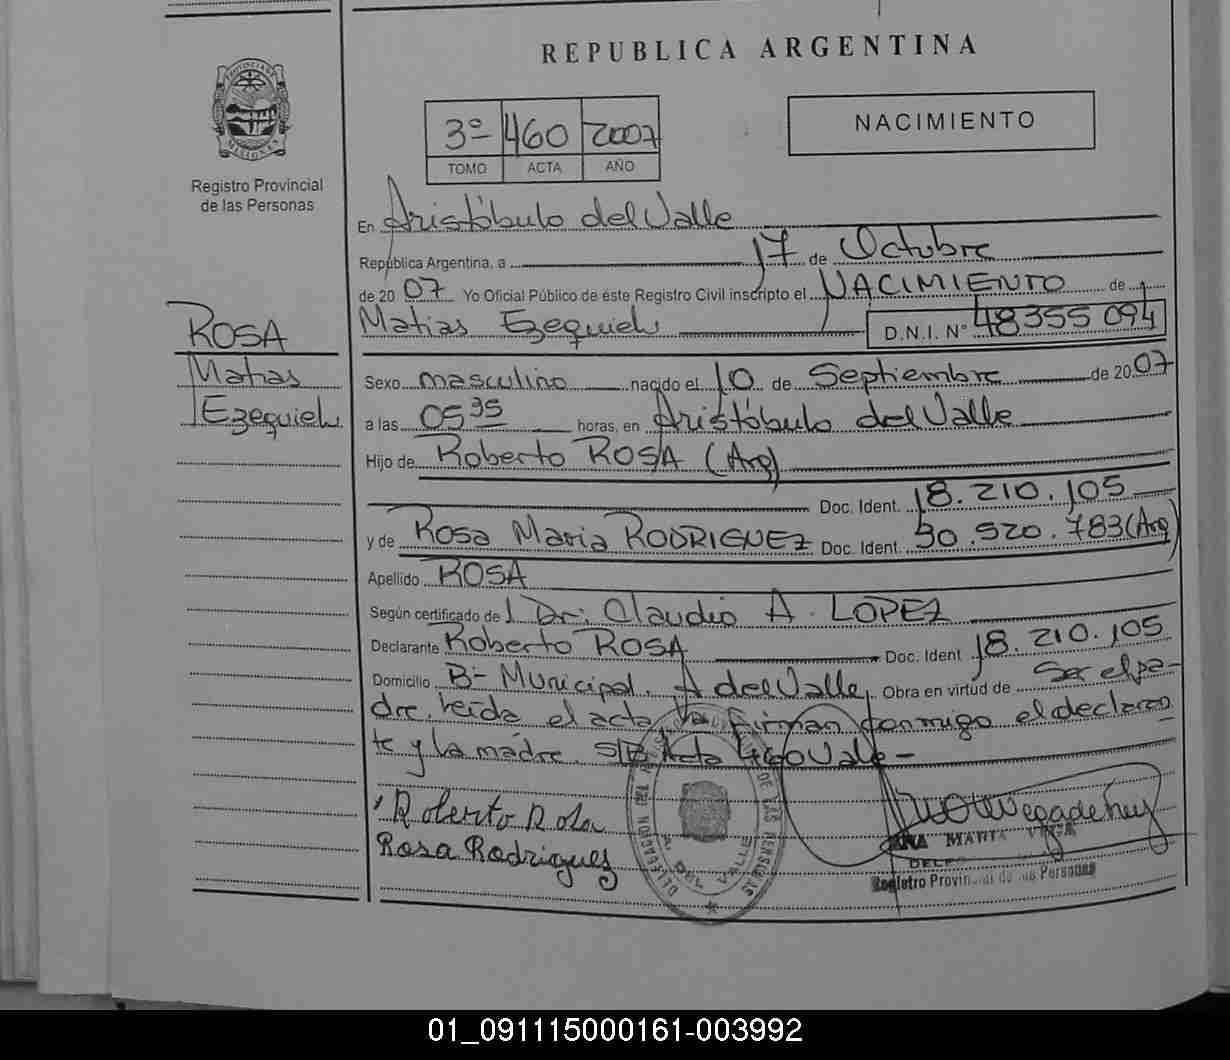 REPUBLICA ARGENTINA
PROVINCIA DE MISIONES
Registro Provincial
de las Personas
3º 460 2007
TOMO ACTA AÑO
NACIMIENTO
ROSA
Matias
Ezequiel
En Aristóbulo del Valle
República Argentina, a 17 de Octubre
de 20 07 Yo Oficial Público de éste Registro Civil inscripto el NACIMIENTO de
Matias Ezequiel D.N.I. Nº 48355 094
Sexo masculino nacido el 10 de Septiembre de 20 07
a las 05 35 horas, en Aristóbulo del Valle
Hijo de Roberto ROSA (Arg)
Doc. Ident. 18.210.105
y de Rosa Maria RODRIGUEZ Doc. Ident. 30.520.783 (Arg)
Apellido ROSA
Según certificado de Dr: Claudio A. LOPEZ
Declarante Roberto ROSA Doc. Ident 18.210.105
Domicilio Bº Municipal. A del Valle Obra en virtud de Ser el pa-
dre. Leída el acta la firman conmigo el declaran
te y la madre. S/B Acta 460 Vale-
Roberto Rosa
Rosa Rodrigues
DELEGACION A. DEL VALLE DE LAS PERSONAS
ANA MARIA VEGA
Registro Provincial de las Personas
01_091115000161-003992